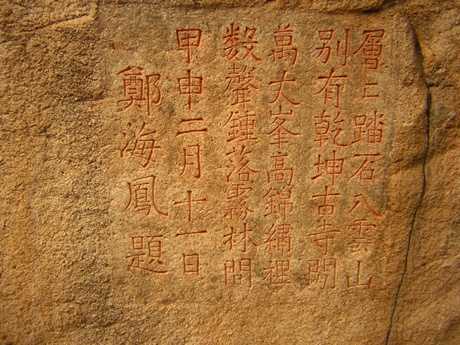 層〻踏石入雲山
別有乾坤古寺閑
萬丈峯高錦繡裡
數聲鍾落霧林間
甲申二月十一日
鄭海鳳題